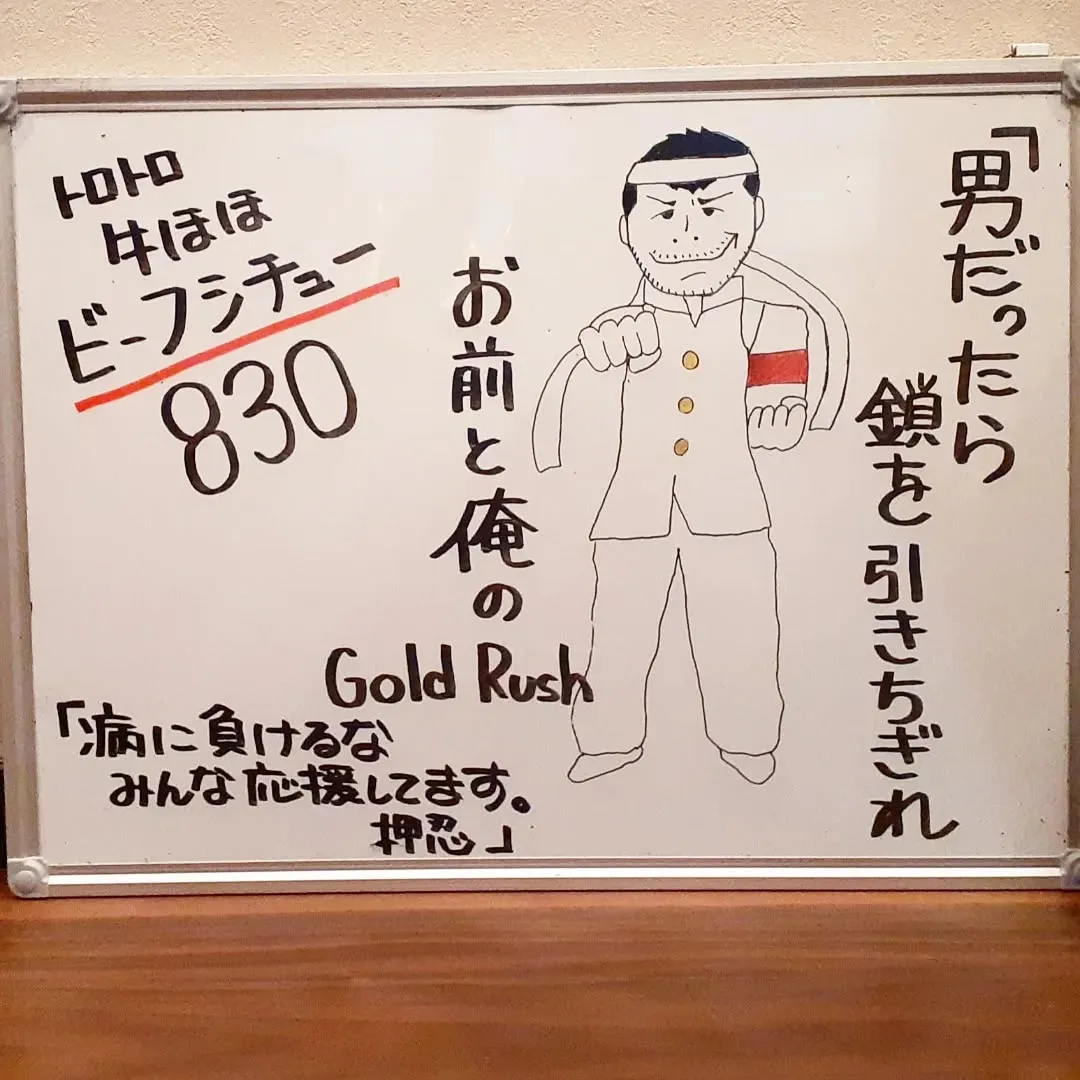 トロトロ
牛ほほ
ビーフシチュー
830
「男だったら
鎖を引きちぎれ
お前と俺の
Gold Rush
「病に負けるな
みんな応援してます。
押忍」